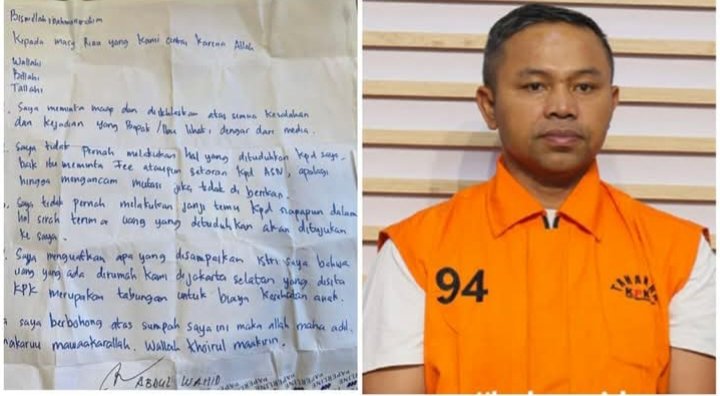 Bismillahirahmanirrahim
Kepada masy Riau yang kami cintai karena Allah
Wallahi
Billahi
Tallahi
Saya meminta maaf dan diikhlaskan atas semua kesalahan
dan kejadian yang Bapak/Ibu lihat, dengar dari media.
Saya tidak Pernah melakukan hal yang dituduhkan kpd saya.
baik itu meminta Fee ataupun setoran kpd ASN, apalagi
hingga mengancam mutasi jika tidak di berikan.
Saya tidak pernah melakukan janji temu kpd siapapun dalam
hal serah terima uang yang dituduhkan akan ditujukan
ke saya.
Saya menguatkan apa yang disampaikan istri saya bahwa
uang yang ada dirumah kami dijakarta selatan yang disita
KPK merupakan tabungan untuk biaya kesehatan anak.
saya berbohong atas sumpah saya ini maka allah maha adil.
makaruu mawaakarallah. Wallah khoirul maakirin.
ABDUL WAHID
PAPERLINE
94
TAHANAN
KPK